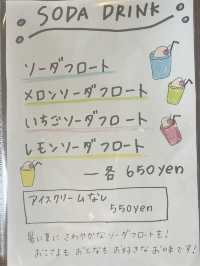 SODA DRINK
ソーダフロート
メロンソーダフロート
いちごソーダフロート
レモンソーダフロート
— 各 650yen
アイスクリームなし
550yen
暑い夏に さわやかな ソーダフロートを!
おこさまも おとなも お好きな お味です!